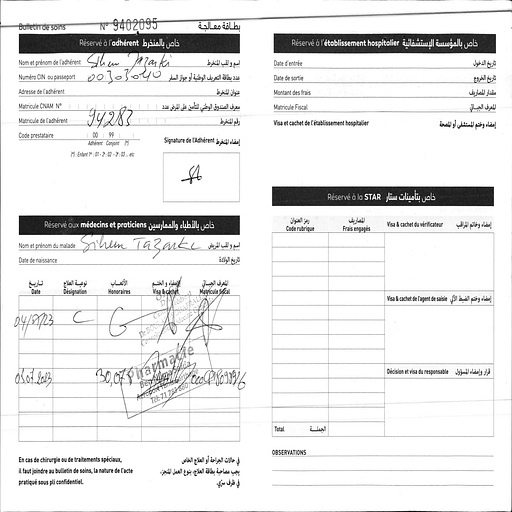 Bulletin de soins N° 9402095 بطاقة معالجة
Réservé à l'adhérent خاص بالمنخرط
Nom et prénom de l'adhérent Sihem Tazarki إسم و لقب المنخرط
Numéro CIN ou passeport 00303040 عدد بطاقة التعريف الوطنية أو جواز السفر
Adresse de l'adhérent عنوان المنخرط
Matricule CNAM N° معرف الصندوق الوطني للتأمين على المرض عدد
Matricule de l'adhérent 94283 رقم المنخرط
Code prestataire 00 99
Adhérent Conjoint
Signature de l'Adhérent إمضاء المنخرط
Réservé aux médecins et praticiens خاص بالأطباء والممارسين
Nom et prénom du malade Sihem Tazarki إسم و لقب المريض
Date de naissance تاريخ الولادة
تاريخ نوعية العلاج الأتعاب الإمضاء و الختم المعرف الجبائي
Date Désignation Honoraires Visa & cachet Matricule fiscal
04/07/23 C G
Pharmacie
05.07.2023 30,078
En cas de chirurgie ou de traitements spéciaux,
il faut joindre au bulletin de soins, la nature de l'acte
pratiqué sous pli confidentiel.
في حالات الجراحة أو العلاج الخاص
يجب مصاحبة بطاقة العلاج، بنوع العمل المنجز،
في ظرف سري.
Réservé à l'établissement hospitalier خاص بالمؤسسة الإستشفائية
Date d'entrée تاريخ الدخول
Date de sortie تاريخ الخروج
Montant des frais مقدار المصاريف
Matricule Fiscal المعرف الجبائي
Visa et cachet de l'établissement hospitalier إمضاء وختم المستشفى أو المصحة
Réservé à la STAR خاص بتأمينات ستار
رمز العنوان المصاريف
Code rubrique Frais engagés
Visa & cachet du vérificateur إمضاء وخاتم المراقب
Visa & cachet de l'agent de saisie إمضاء وختم الضبط الآلي
Décision et visa du responsable قرار وإمضاء المسؤول
Total الجملة
OBSERVATIONS